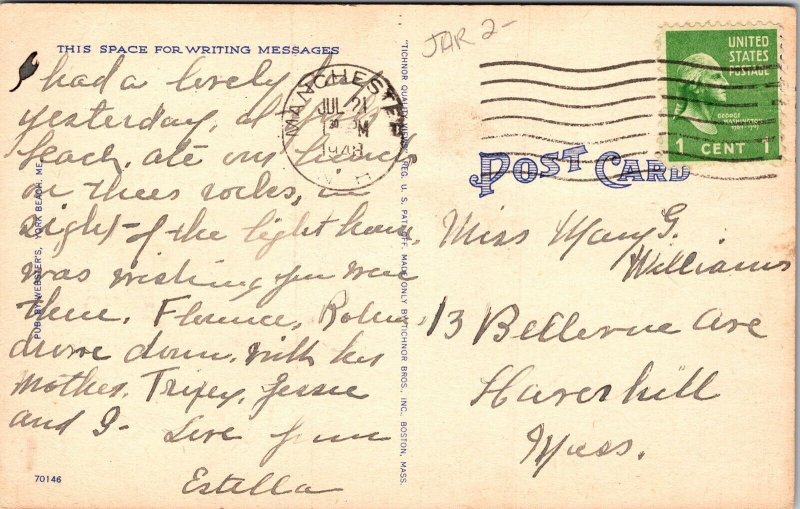 THIS SPACE FOR WRITING MESSAGES
I had a lovely
yesterday, at
beach, ate our lunch
on thees rocks, in
sight of the light house,
was wishing you were
there. Florence, Robin
drove down, with his
mother, Trixey, Jessie
and I - Love from
Estella
70146
PUB. BY WEBSTER'S, YORK BEACH, ME.
"TICHNOR QUALITY VIEWS," REG. U. S. PAT. OFF. MADE ONLY BY TICHNOR BROS. INC. BOSTON, MASS.
JAR 2-
MANCHESTER
JUL 21
M
1948
N.H.
UNITED
STATES
POSTAGE
GEORGE
WASHINGTON
1789-1797
1 CENT 1
POST CARD
Miss Mary G.
Williams
13 Bellevue Ave
Haverhill
Mass.